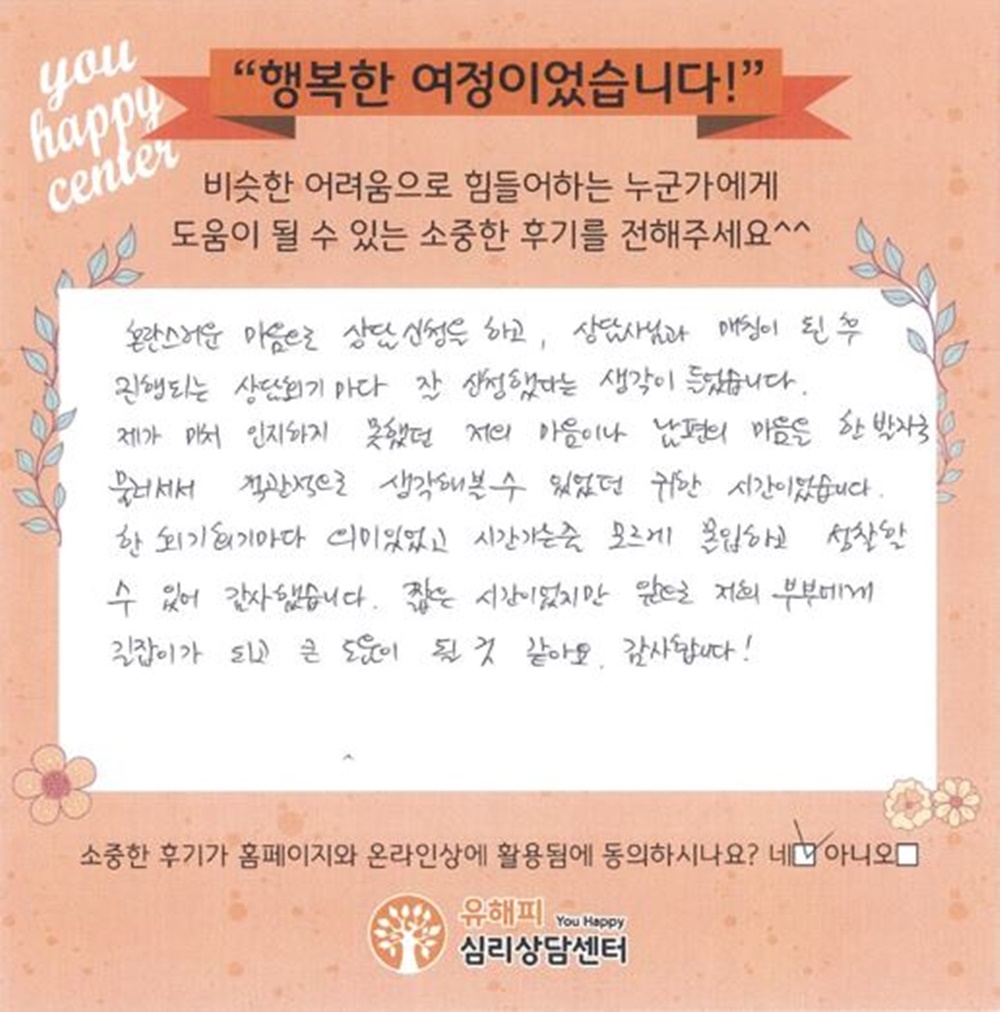 you
happy
center
“행복한 여정이었습니다!”
비슷한 어려움으로 힘들어하는 누군가에게
도움이 될 수 있는 소중한 후기를 전해주세요^^
혼란스러운 마음으로 상담신청을 하고, 상담사님과 매칭이 된 후
진행되는 상담회기마다 잘 신청했다는 생각이 들었습니다.
제가 미처 인지하지 못했던 저의 마음이나 남편의 마음을 한 발자국
물러서서 객관적으로 생각해볼 수 있었던 귀한 시간이었습니다.
한 회기회기마다 의미있었고 시간가는줄 모르게 몰입하고 성찰할
수 있어 감사했습니다. 짧은 시간이었지만 앞으로 저희 부부에게
길잡이가 되고 큰 도움이 될 것 같아요. 감사합니다!
소중한 후기가 홈페이지와 온라인상에 활용됨에 동의하시나요? 네☑ 아니오☐
유해피 You Happy
심리상담센터